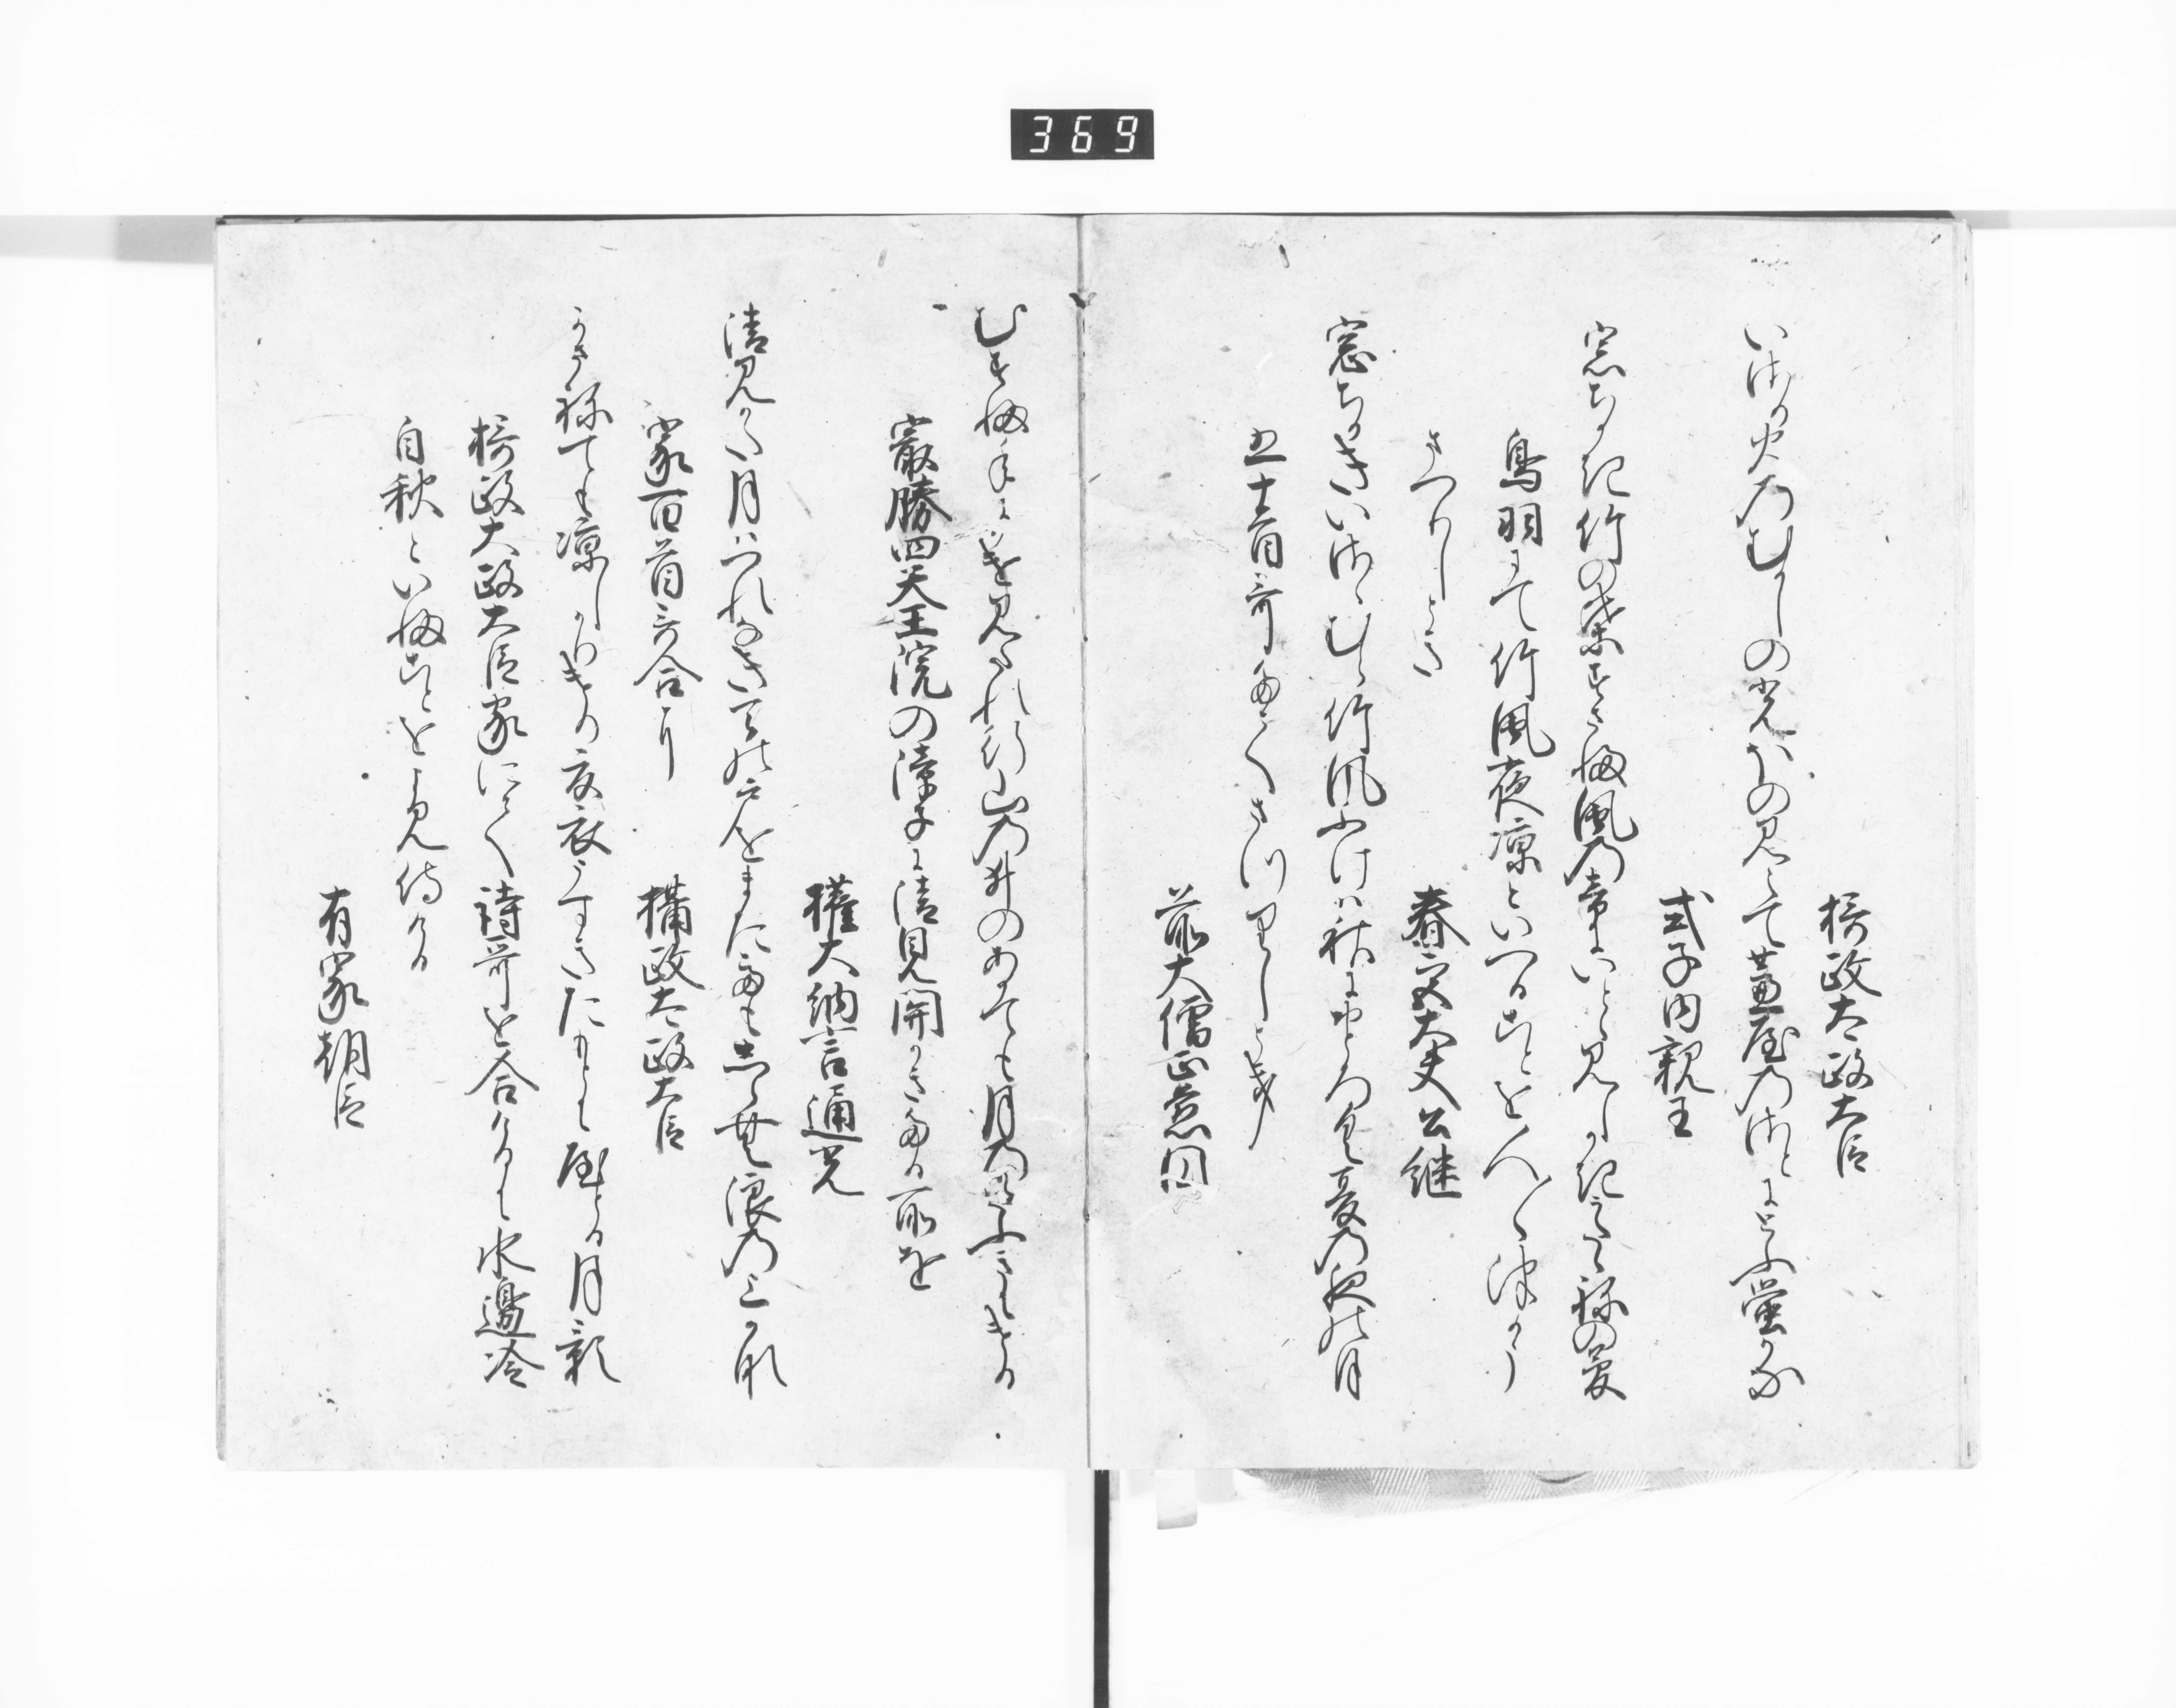 369
摂政太政大臣
いさり火のむかしの光ほの見えて蘆屋のさとにとふ蛍かな
式子内親王
窓ちかき竹の葉すさむ風の音にいとゝ見しかきうたゝねの夢
鳥羽にて竹風夜涼といへることを人〱つかうま
つりしとき
春宮大夫公継
窓ちかきいさゝむら竹風ふけは秋におとろく夏の夜の月
五十首哥たてまつりしとき
前大僧正慈円
むすふ手にかけ見たれ行山の井のあかても月のかたふきにける
最勝四天王院の障子に清見関かきたる所を
権大納言通光
清見かた月はつれなき天の戸をまたてもしらむ浪のうへかな
家百首哥合に
摂政太政大臣
かさねても涼しかりけり夏衣うすきたもとにやとる月影
摂政太政大臣家にて詩哥を合けるに水邊冷
自秋といふことをよみ侍ける
有家朝臣